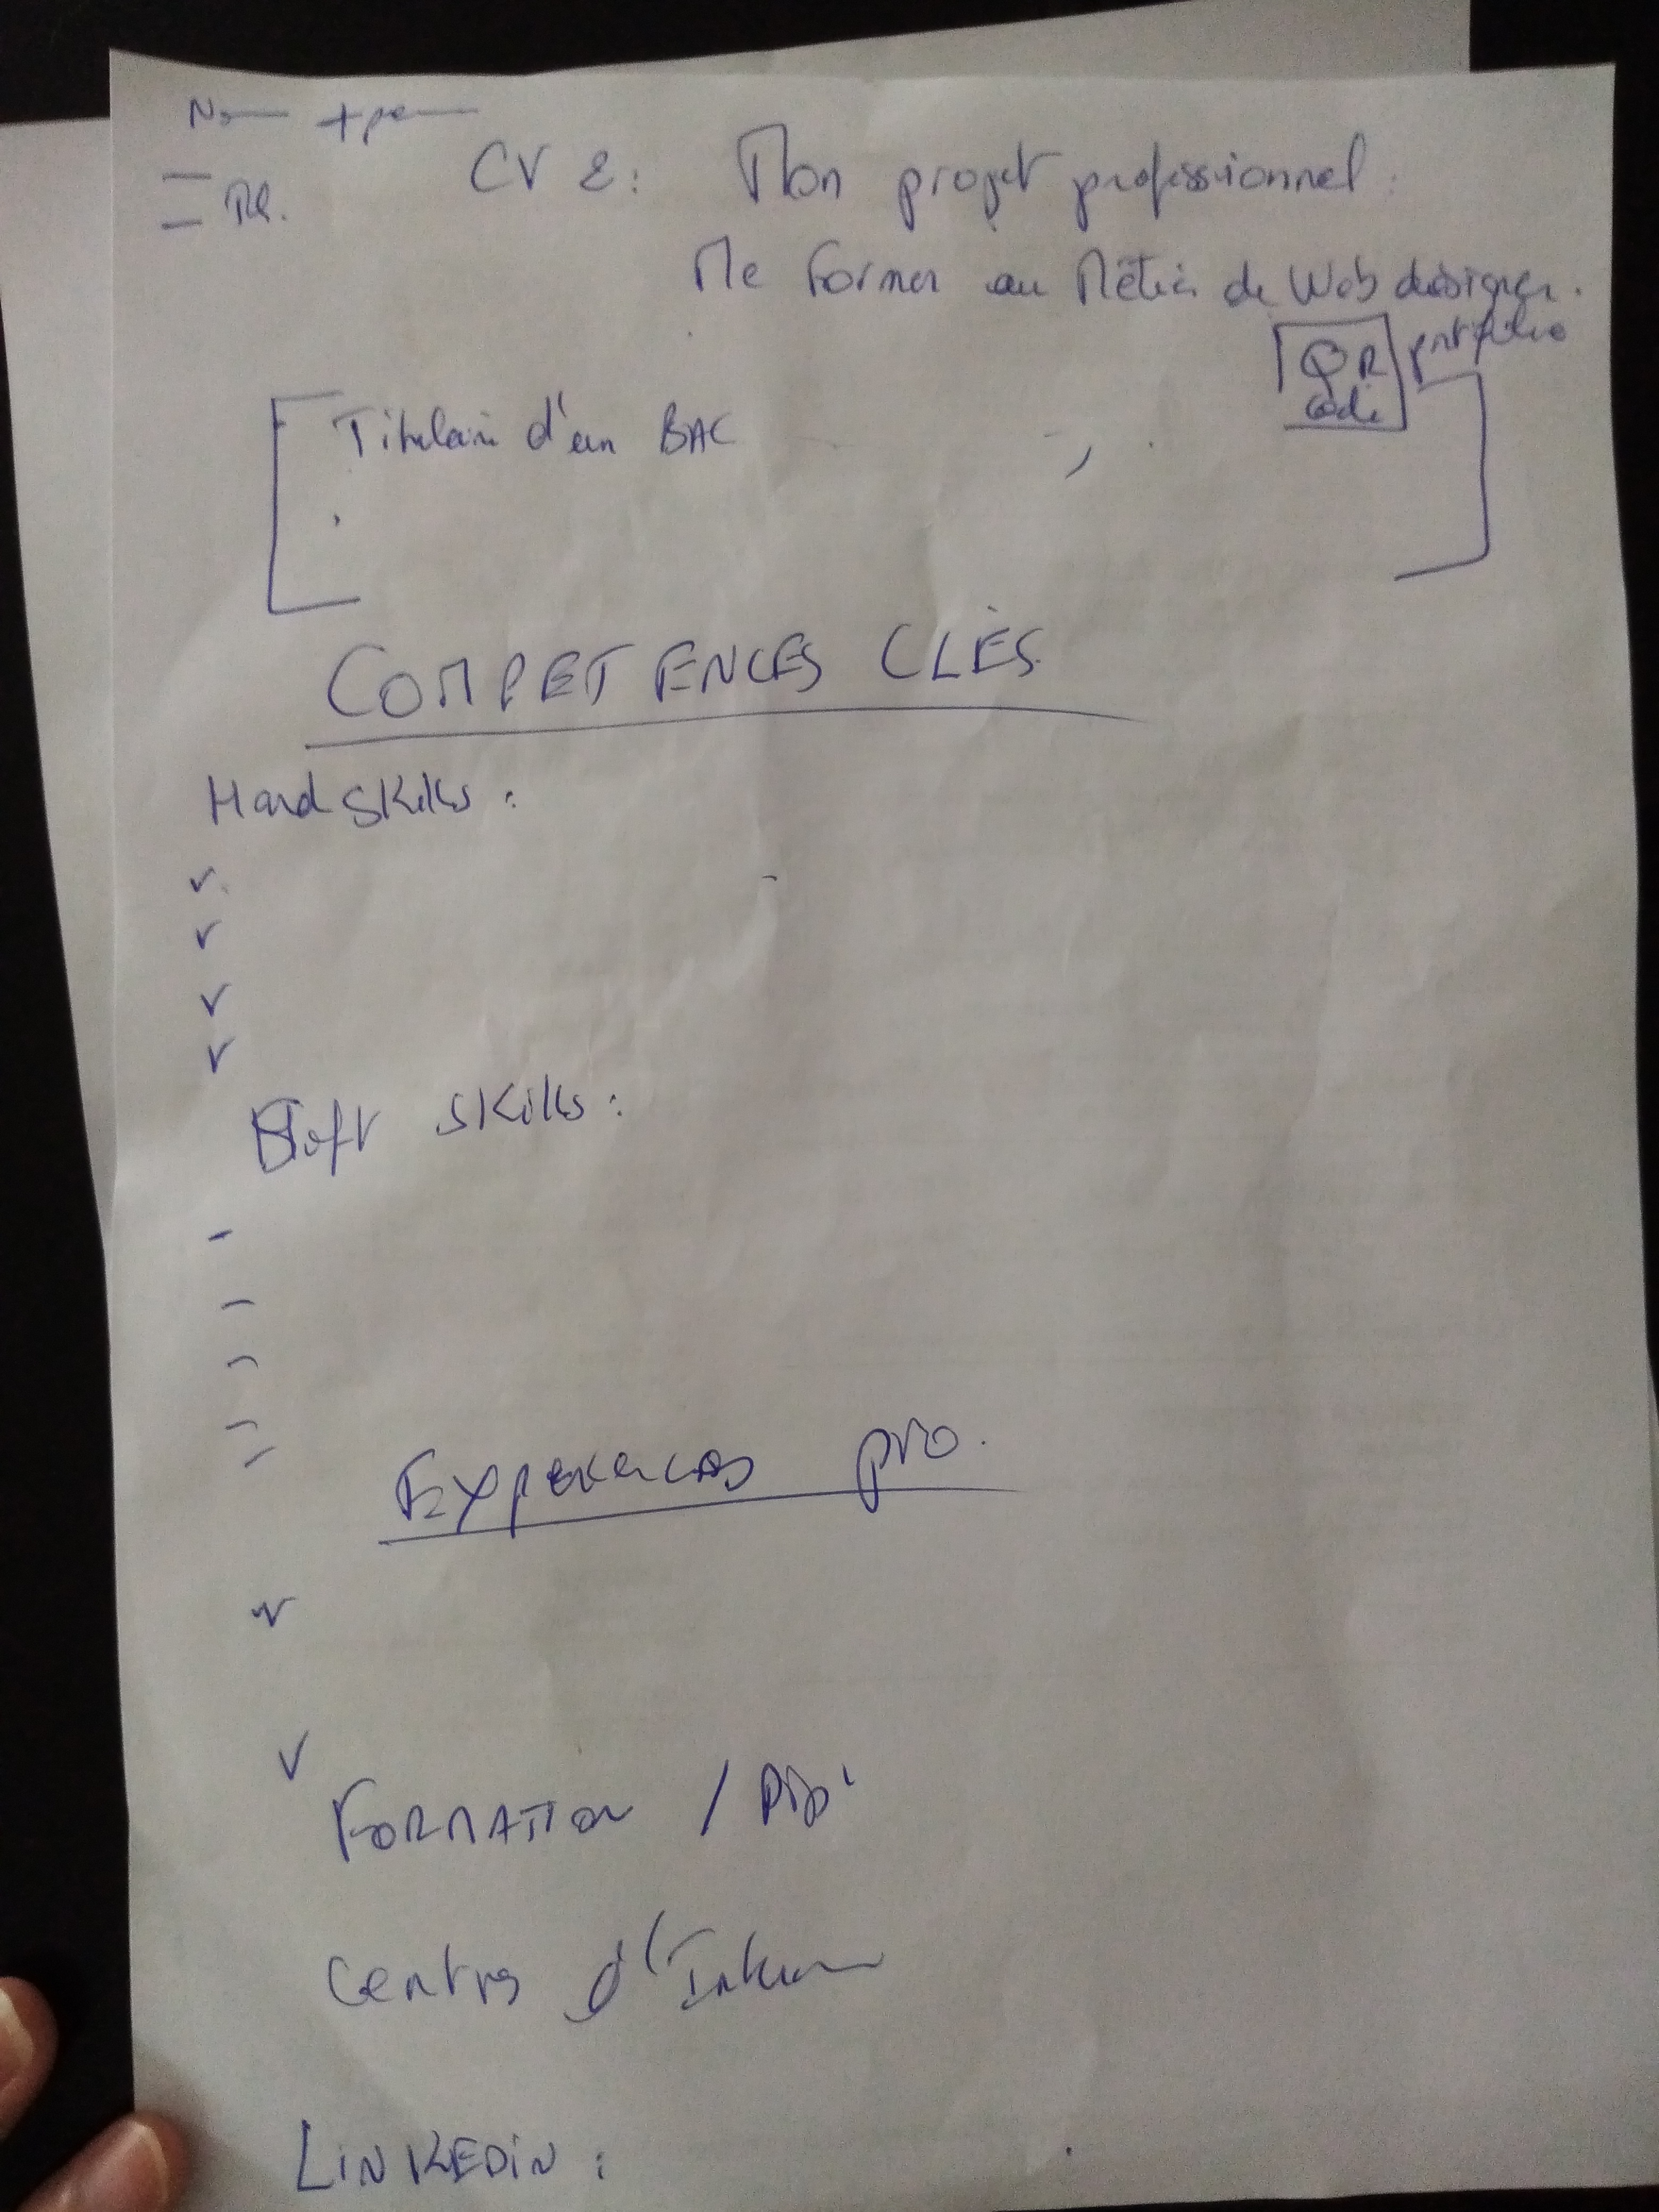 CV 2: Mon projet professionnel.
Tél.
Me Former au Métier de Web designer.
QR code portfolio
Titulaire d'un BAC
COMPETENCES CLÈS
Hard skills :
Soft skills :
Experiences pro.
FORMATION /
Centres d'
LINKEDIN :